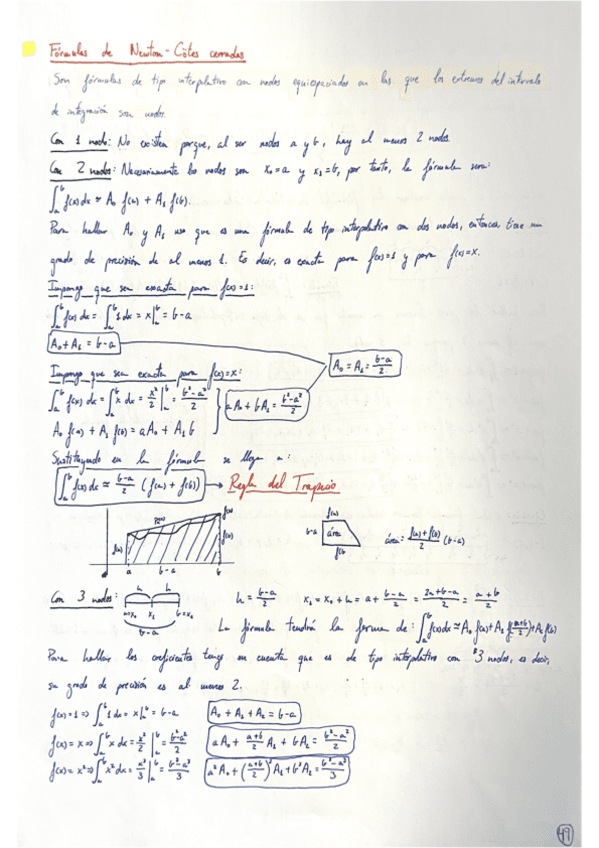 Fórmulas de Newton-Côtes cerradas
Son fórmulas de tipo interpolativo con nodos equiespaciados en las que los extremos del intervalo
de integración son nodos.
Con 1 nodo: No existen porque, al ser nodos a y b, hay al menos 2 nodos
Con 2 nodos: Necesariamente los nodos son x₀=a y x₁=b, por tanto, la fórmula será:
∫ₐᵇ f(x)dx ≃ A₀ f(a) + A₁ f(b).
Para hallar A₀ y A₁ uso que es una fórmula de tipo interpolativo con dos nodos, entonces tiene un
grado de precisión de al menos 1. Es decir, es exacta para f(x)=1 y para f(x)=x.
Impongo que sea exacta para f(x)=1:
∫ₐᵇ f(x) dx = ∫ₐᵇ 1 dx = x|ₐᵇ = b-a
A₀+A₁ = b-a
A₀ = A₁ = (b-a)/2
Impongo que sea exacta para f(x)=x:
∫ₐᵇ f(x) dx = ∫ₐᵇ x dx = x²/2 |ₐᵇ = (b²-a²)/2
aA₀ + bA₁ = (b²-a²)/2
A₀ f(a) + A₁ f(b) = aA₀ + A₁b
Sustituyendo en la fórmula se llega a:
∫ₐᵇ f(x) dx ≃ (b-a)/2 (f(a) + f(b)) → Regla del Trapecio
f(b)
f(a) f(b)
a b-a b
f(a)
b-a área
f(b)
área = (f(a)+f(b))/2 (b-a)
Con 3 nodos: h h
a=x₀ x₁ b=x₂
b-a
h = (b-a)/2 x₁ = x₀ + h = a + (b-a)/2 = (2a+b-a)/2 = (a+b)/2
La fórmula tendrá la forma de: ∫ₐᵇ f(x)dx ≃ A₀ f(a) + A₁ f((a+b)/2) + A₂ f(b)
Para hallar los coeficientes tengo en cuenta que es de tipo interpolativo con 3 nodos, es decir,
su grado de precisión es al menos 2.
f(x)=1 ⇒ ∫ₐᵇ 1 dx = x|ₐᵇ = b-a A₀ + A₁ + A₂ = b-a
f(x)=x ⇒ ∫ₐᵇ x dx = x²/2 |ₐᵇ = (b²-a²)/2 aA₀ + (a+b)/2 A₁ + bA₂ = (b²-a²)/2
a²A₀ + ((a+b)/2)² A₁ + b²A₂
49